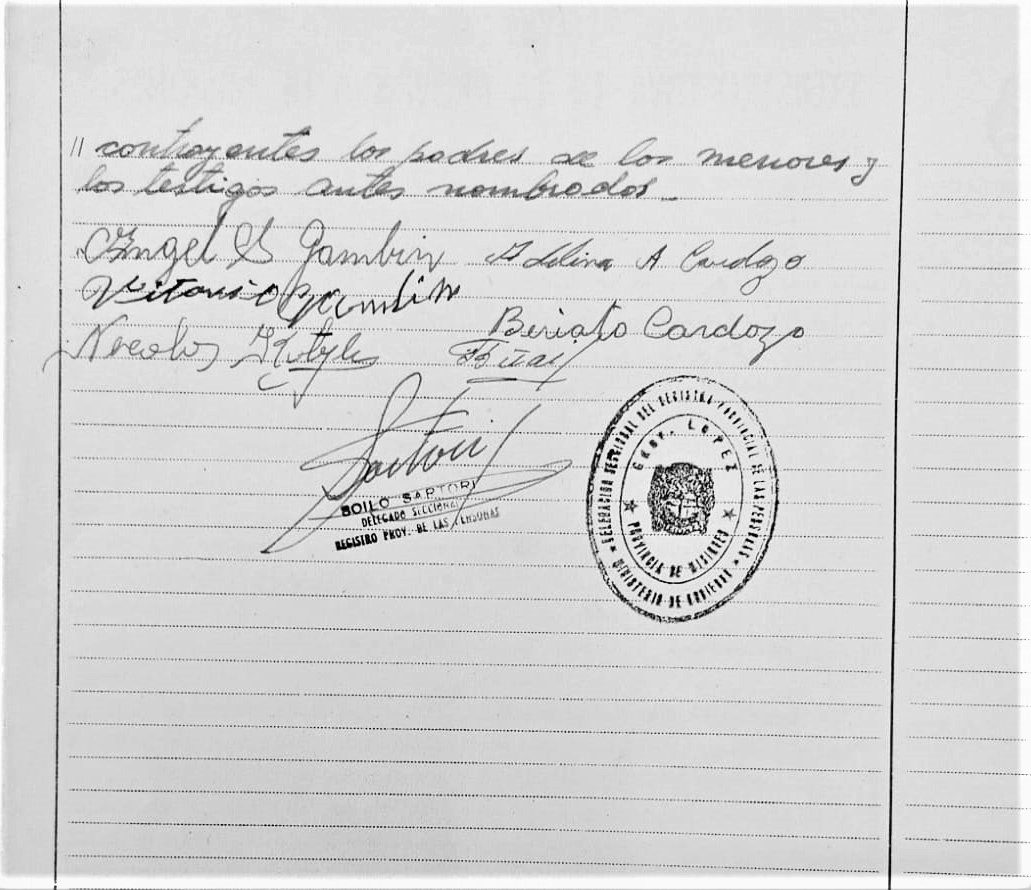 // contrayentes los padres de los menores y
los testigos antes nombrados.
Angel S Gambin
Adelina A Cardozo
Vitorio Gambin
Beriato Cardozo
Nicolas
Sartori
BOILO SARTORI
DELEGADO SECCIONAL
REGISTRO PROV. DE LAS PERSONAS
DELEGACION SECCIONAL DEL REGISTRO PROVINCIAL DE LAS PERSONAS
GRAL. LOPEZ
PROVINCIA DE MISIONES
MINISTERIO DE GOBIERNO